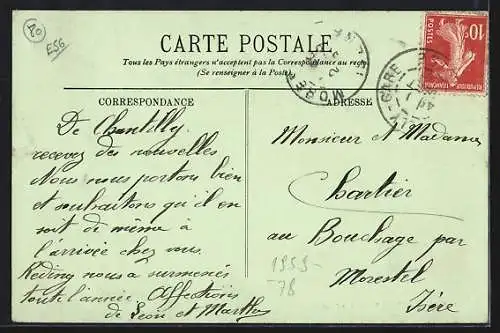 80
E56
CARTE POSTALE
Tous les Pays étrangers n'acceptent pas la Correspondance au recto
(Se renseigner à la Poste)
CORRESPONDANCE
ADRESSE
10c
POSTES
De Chantilly
recevez des nouvelles
Nous nous portons bien
et souhaitons qu'il en
soit de même à
l'arrivée chez vous.
nous a surmenés
toute l'année. Affections
de Léon et Marthe
Monsieur et Madame
Chartier
au Bouchage par
Morestel
Isère
1959-
78